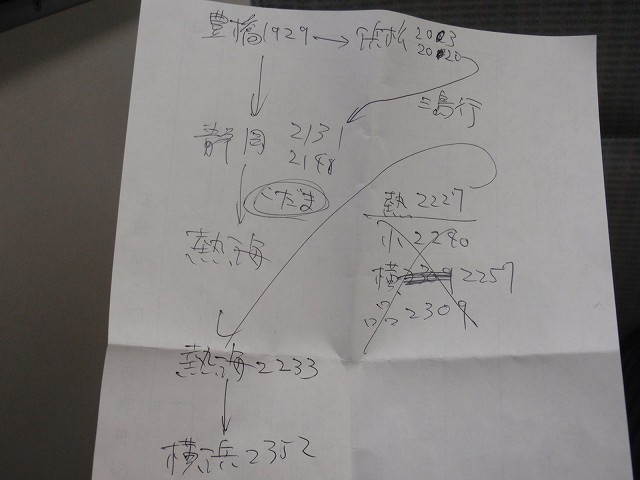 豊橋1929→浜松2003
2020
三島行
静岡 2131
2148
こだま
熱海
熱2227
小2240
横 2257
品2309
熱海2233
横浜2352